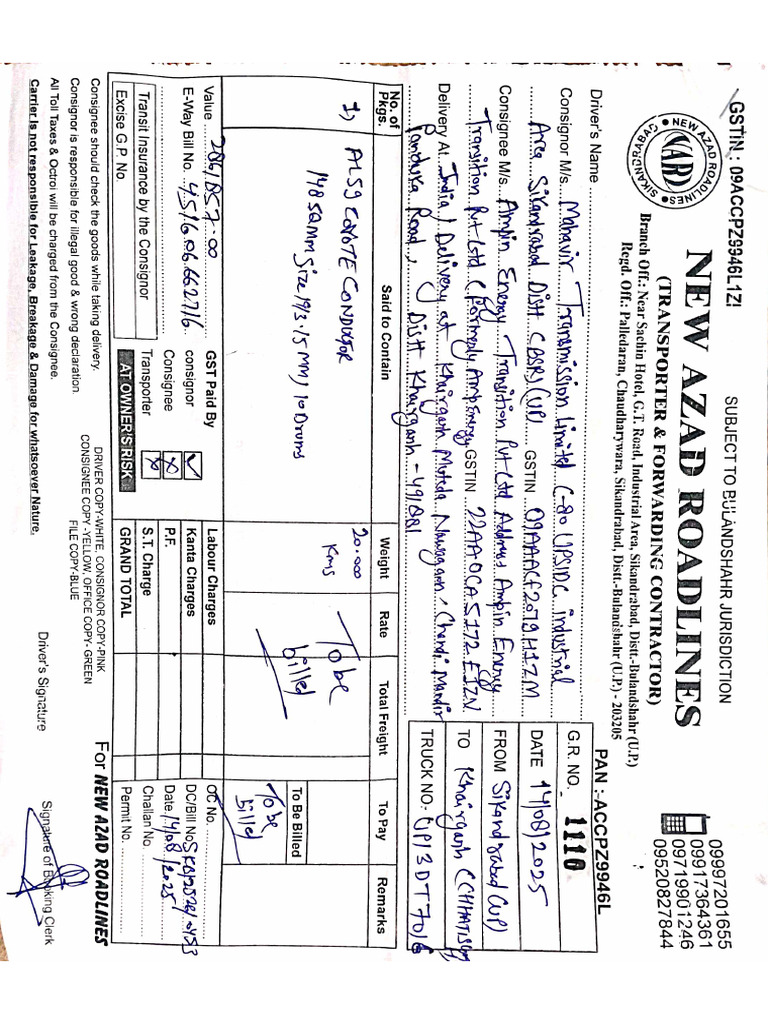 GSTIN : 09ACCPZ9946L1ZI
SUBJECT TO BULANDSHAHR JURISDICTION
09997201655
09917364361
09719901246
09520827844
NEW AZAD ROADLINES
SIKANDRABAD
NARD
NEW AZAD ROADLINES
(TRANSPORTER & FORWARDING CONTRACTOR)
Branch Off.: Near Sachin Hotel, G.T. Road, Industrial Area, Sikandrabad, Distt.-Bulandshahr (U.P.)
Regd. Off.: Palledaran, Chaudharywara, Sikandrabad, Distt.-Bulandshahr (U.P.) - 203205
PAN :-ACCPZ9946L
Driver's Name
G.R. NO. 1110
Consignor M/s. Mahavir Transmission Limited C-80 UPSIDC industrial
Area Sikandrabad Distt (BSR) (UP) GSTIN 09AAACF2079H1ZM
DATE 14/08/2025
Consignee M/s. Ampin Energy Transition Pvt Ltd Address Ampin Energy
FROM Sikandrabad (UP)
Transition Pvt Ltd (Formerly Amp Energy GSTIN 22AAOCA5172E1ZN
TO Khairgarh (CHHATISGARH)
Delivery At India) Delivery at Khairgarh Muteda Nawagaon, Chandi Mandir
Panduka Road, Distt Khairgarh - 491881
TRUCK NO.: UP13DT7016
No. of Pkgs. Said to Contain Weight Rate Total Freight To Pay Remarks
1) AL59 COYOTE CONDUCTOR 20.000 To be
148 SQMM Size 19/3.15 MM, 10 Drums Kms billed
To Be Billed
To be
billed
Value 286/857.00 GST Paid By Labour Charges OC No.
E-Way Bill No. 451606662716 consignor Kanta Charges DC/Bill No SKB/2526/0453
Consignee P.F. Date 14/08/2025
Transit Insurance by the Consignor Transporter S.T. Charge Challan No.
Excise G.P. No. AT OWNER'S RISK GRAND TOTAL Permit No.
Consignee should check the goods while taking delivery.
Consignor is responsible for illegal good & wrong declaration.
All Toll Taxes & Octroi will be charged from the Consignee.
Carrier Is not responsible for Leakage, Breakage & Damage for whatsoever Nature.
DRIVER COPY-WHITE, CONSIGNOR COPY-PINK
CONSIGNEE COPY -YELLOW, OFFICE COPY- GREEN
FILE COPY-BLUE
For NEW AZAD ROADLINES
Driver's Signature
Signature of Booking Clerk